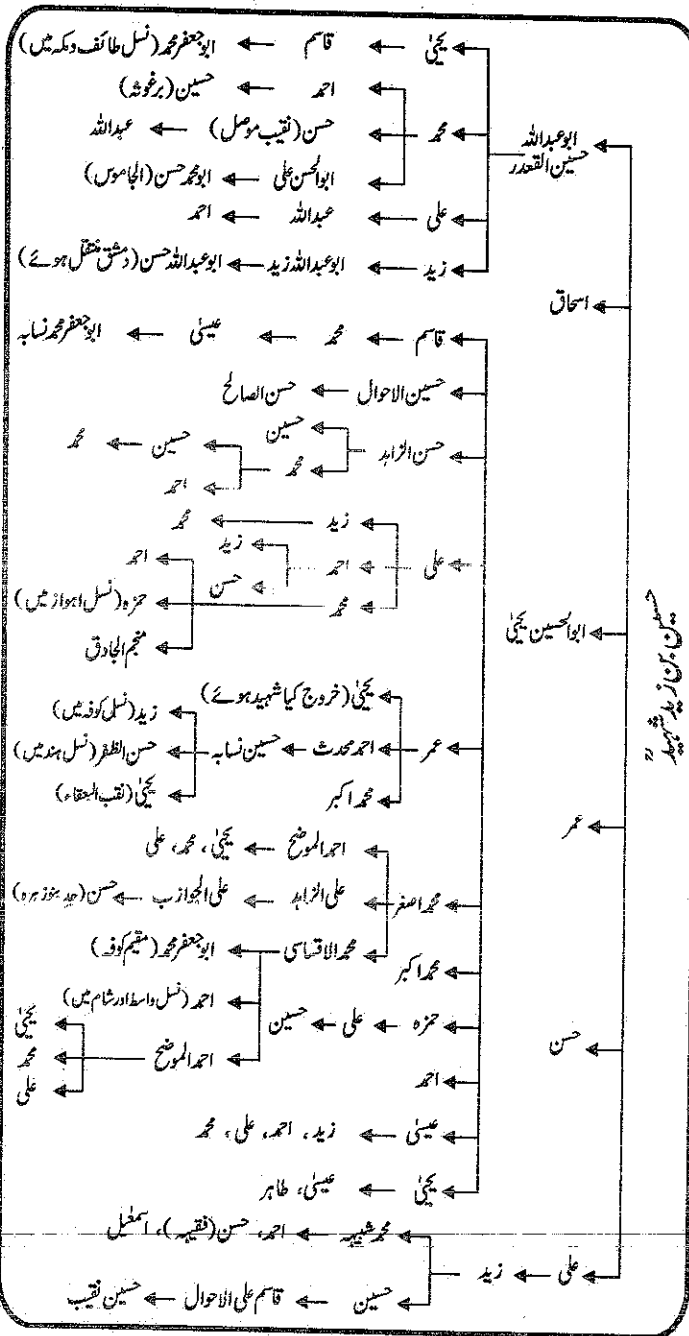 حسین بن زید شہیدؒ
ابوعبداللہ
حسین القعدر
یحییٰ ← قاسم ← ابوجعفر محمد (نسل طائف ومکہ میں)
محمد
احمد ← حسین (برغوثہ)
حسن (نقیب موصل) ← عبداللہ
ابوالحسن علی ← ابومحمد حسن (الجاموس)
علی ← عبداللہ ← احمد
زید ← ابوعبداللہ زید ← ابوعبداللہ حسن (دمشق منتقل ہوئے)
اسحاق
ابوالحسین یحییٰ
قاسم ← محمد ← عیسیٰ ← ابوجعفر محمد نسابہ
حسین الاحوال ← حسن الصالح
حسن الزاہد
حسین
محمد
حسین ← محمد
احمد
علی
زید ← محمد
احمد
زید
حسن
محمد
احمد
حمزہ (نسل اہواز میں)
منجم الجادق
عمر
یحییٰ (خروج کیا شہید ہوئے)
احمد محدث ← حسین نسابہ
زید (نسلی کوفہ میں)
حسن الظفر (نسل ہند میں)
یحییٰ (نقب العقاء)
محمد اکبر
محمد اصغر
احمد الموضح ← یحییٰ، محمد، علی
علی الزاہد ← علی الجوازب ← حسن (جد بنوزہرہ)
محمد الاقساسی
ابوجعفر محمد (مقیم کوفہ)
احمد (نسل واسط اور شام میں)
احمد الموضح
یحییٰ
محمد
علی
محمد اکبر
حمزہ ← علی ← حسین
احمد
عیسیٰ ← زید، احمد، علی، محمد
یحییٰ ← عیسیٰ، طاہر
عمر
حسن
علی ← زید
محمد شبیہہ ← احمد، حسن (فقیہہ)، اسمٰعیل
حسین ← قاسم علی الاحوال ← حسین نقیب